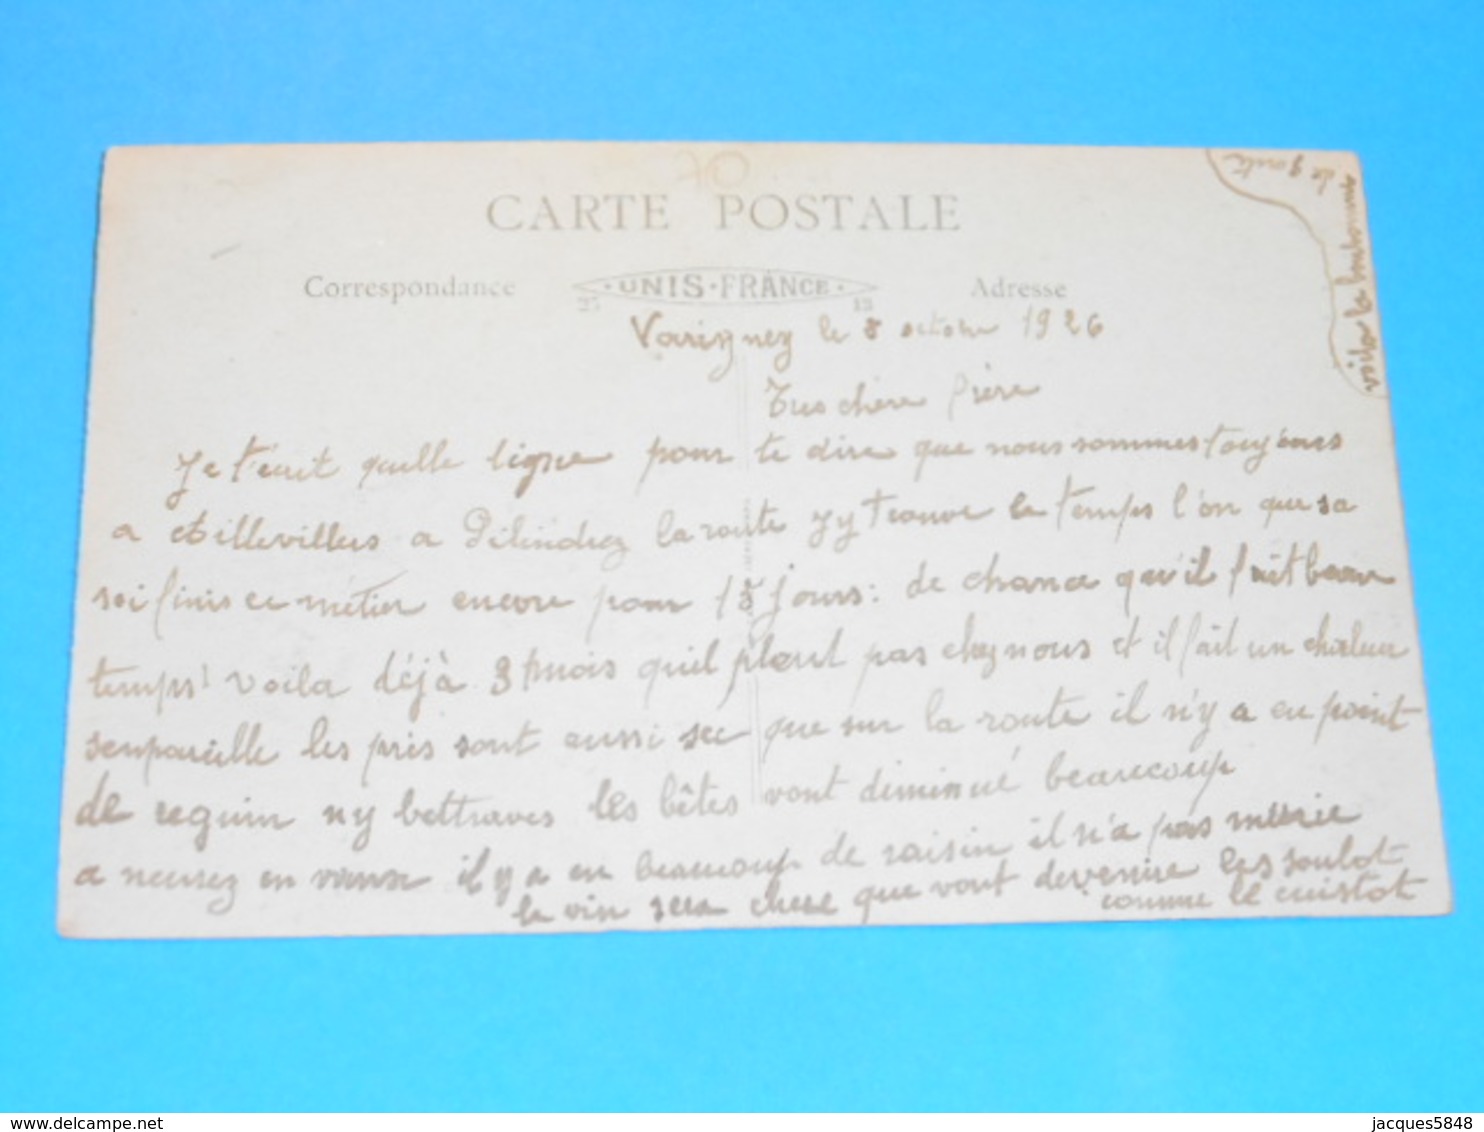 70
CARTE POSTALE
Correspondance UNIS·FRANCE· Adresse
25 13
le 8 octobre 1926
chere frère
Je t'écrit quelle ligne pour te dire que nous sommes toujours
a Aillevillers a la route j'y trouve le temps l'on que sa
soi finis ce métier encore pour 15 jours: de chance qu'il fait beau
temps! voila déjà 3 mois quil pleut pas chez nous et il fait un chaleur
senpareille les près sont aussi sec que sur la route il n'y a eu point
de reguin ny bettraves les bêtes vont diminué beaucoup
a il y a eu beaucoup de raisin il n'a pas
le vin sera chere que vont devenire les soulot
comme le cuistot
voila la
de
jacques5848